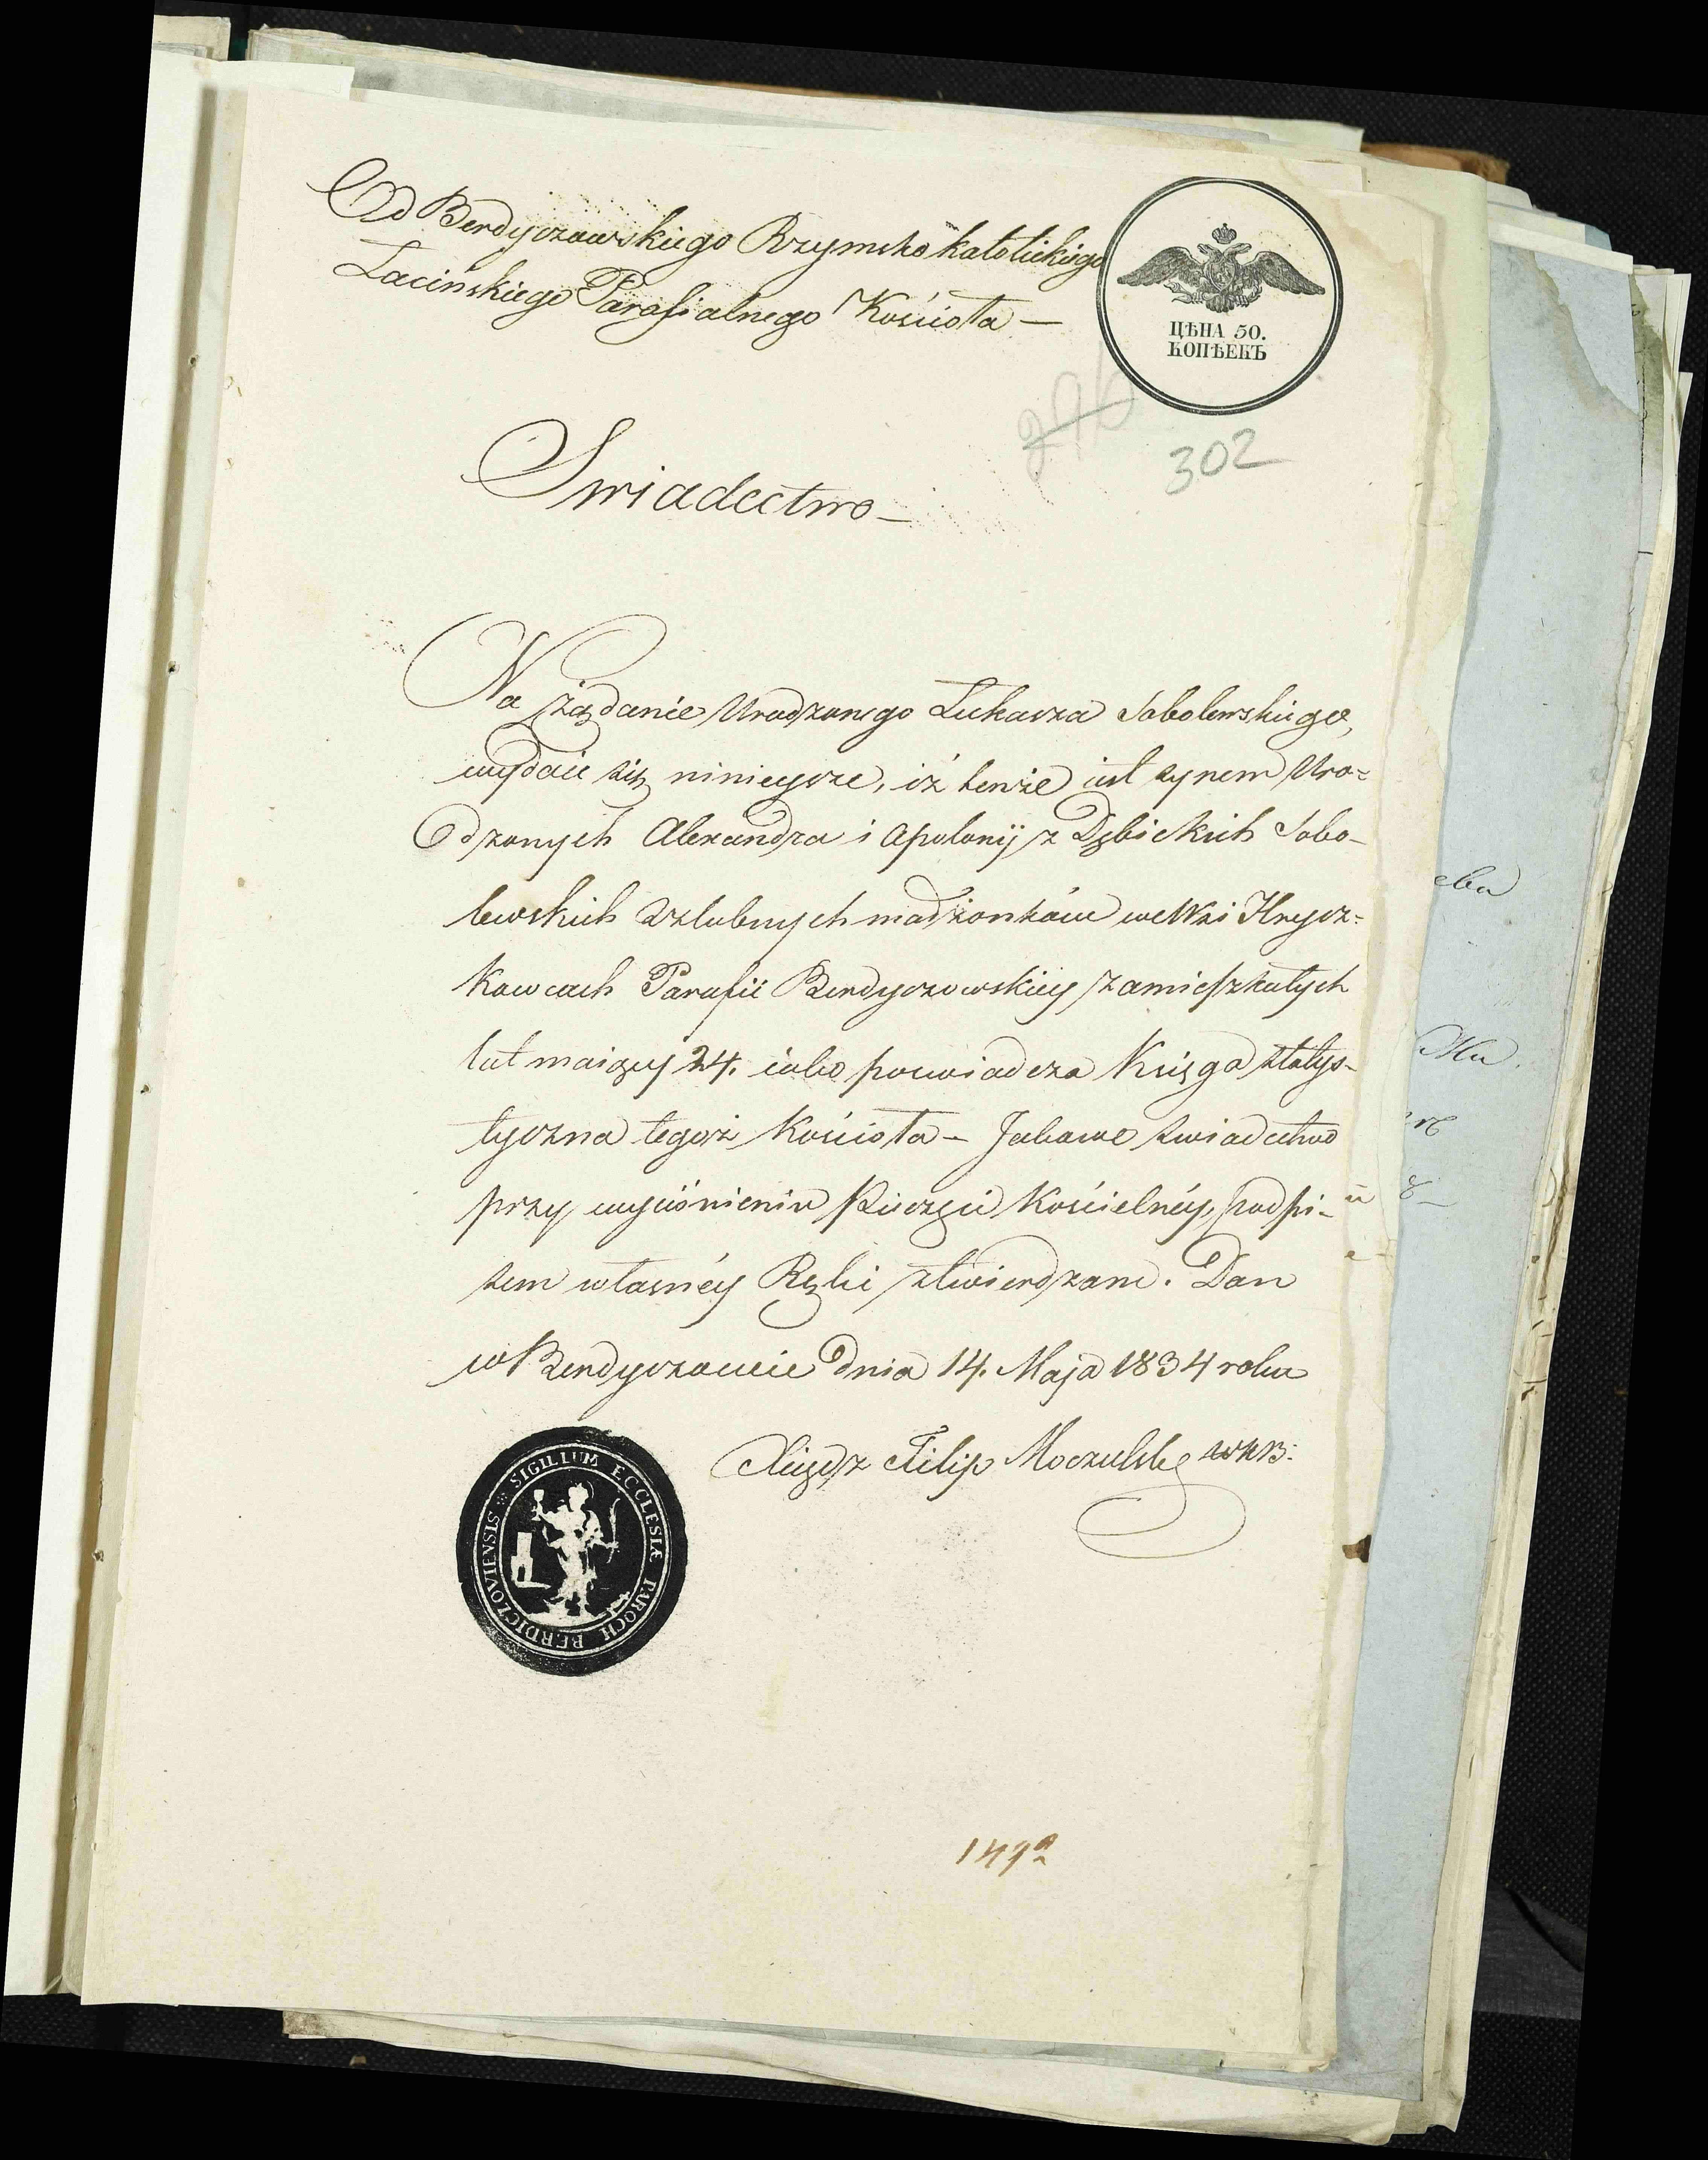 Od Berdyczowskiego Rzymsko katolickiego
Łacińskiego Parafialnego Kościoła —
ЦѢНА 50.
КОПѢЕКЪ
302
Swiadectwo —
Na żądanie Urodzonego Łukasza Sobolewskiego,
wydaie się ninieysze, iż tenże iest synem Uro=
dzonych Alexandra i Apolonij z Dębickich Sobo-
lewskich Szlubnych małżonków we Wsi Hrysz=
kowcach Parafii Berdyczowskiey zamieszkałych
lat maiący 24. iako poswiadcza Księga statys-
tyczna tegoż Kościoła — Jakowe swiadectwo
przy wyciśnieniu Pieczęci Kościelnéy, podpi-
sem własnéy Ręki stwierdzam. Dan
w Berdyczowie dnia 14. Maja 1834 roku
Xiądz Filip Moczulski
SIGILLUM ECCLESIÆ PAROCH BERDICZOVIENSIS